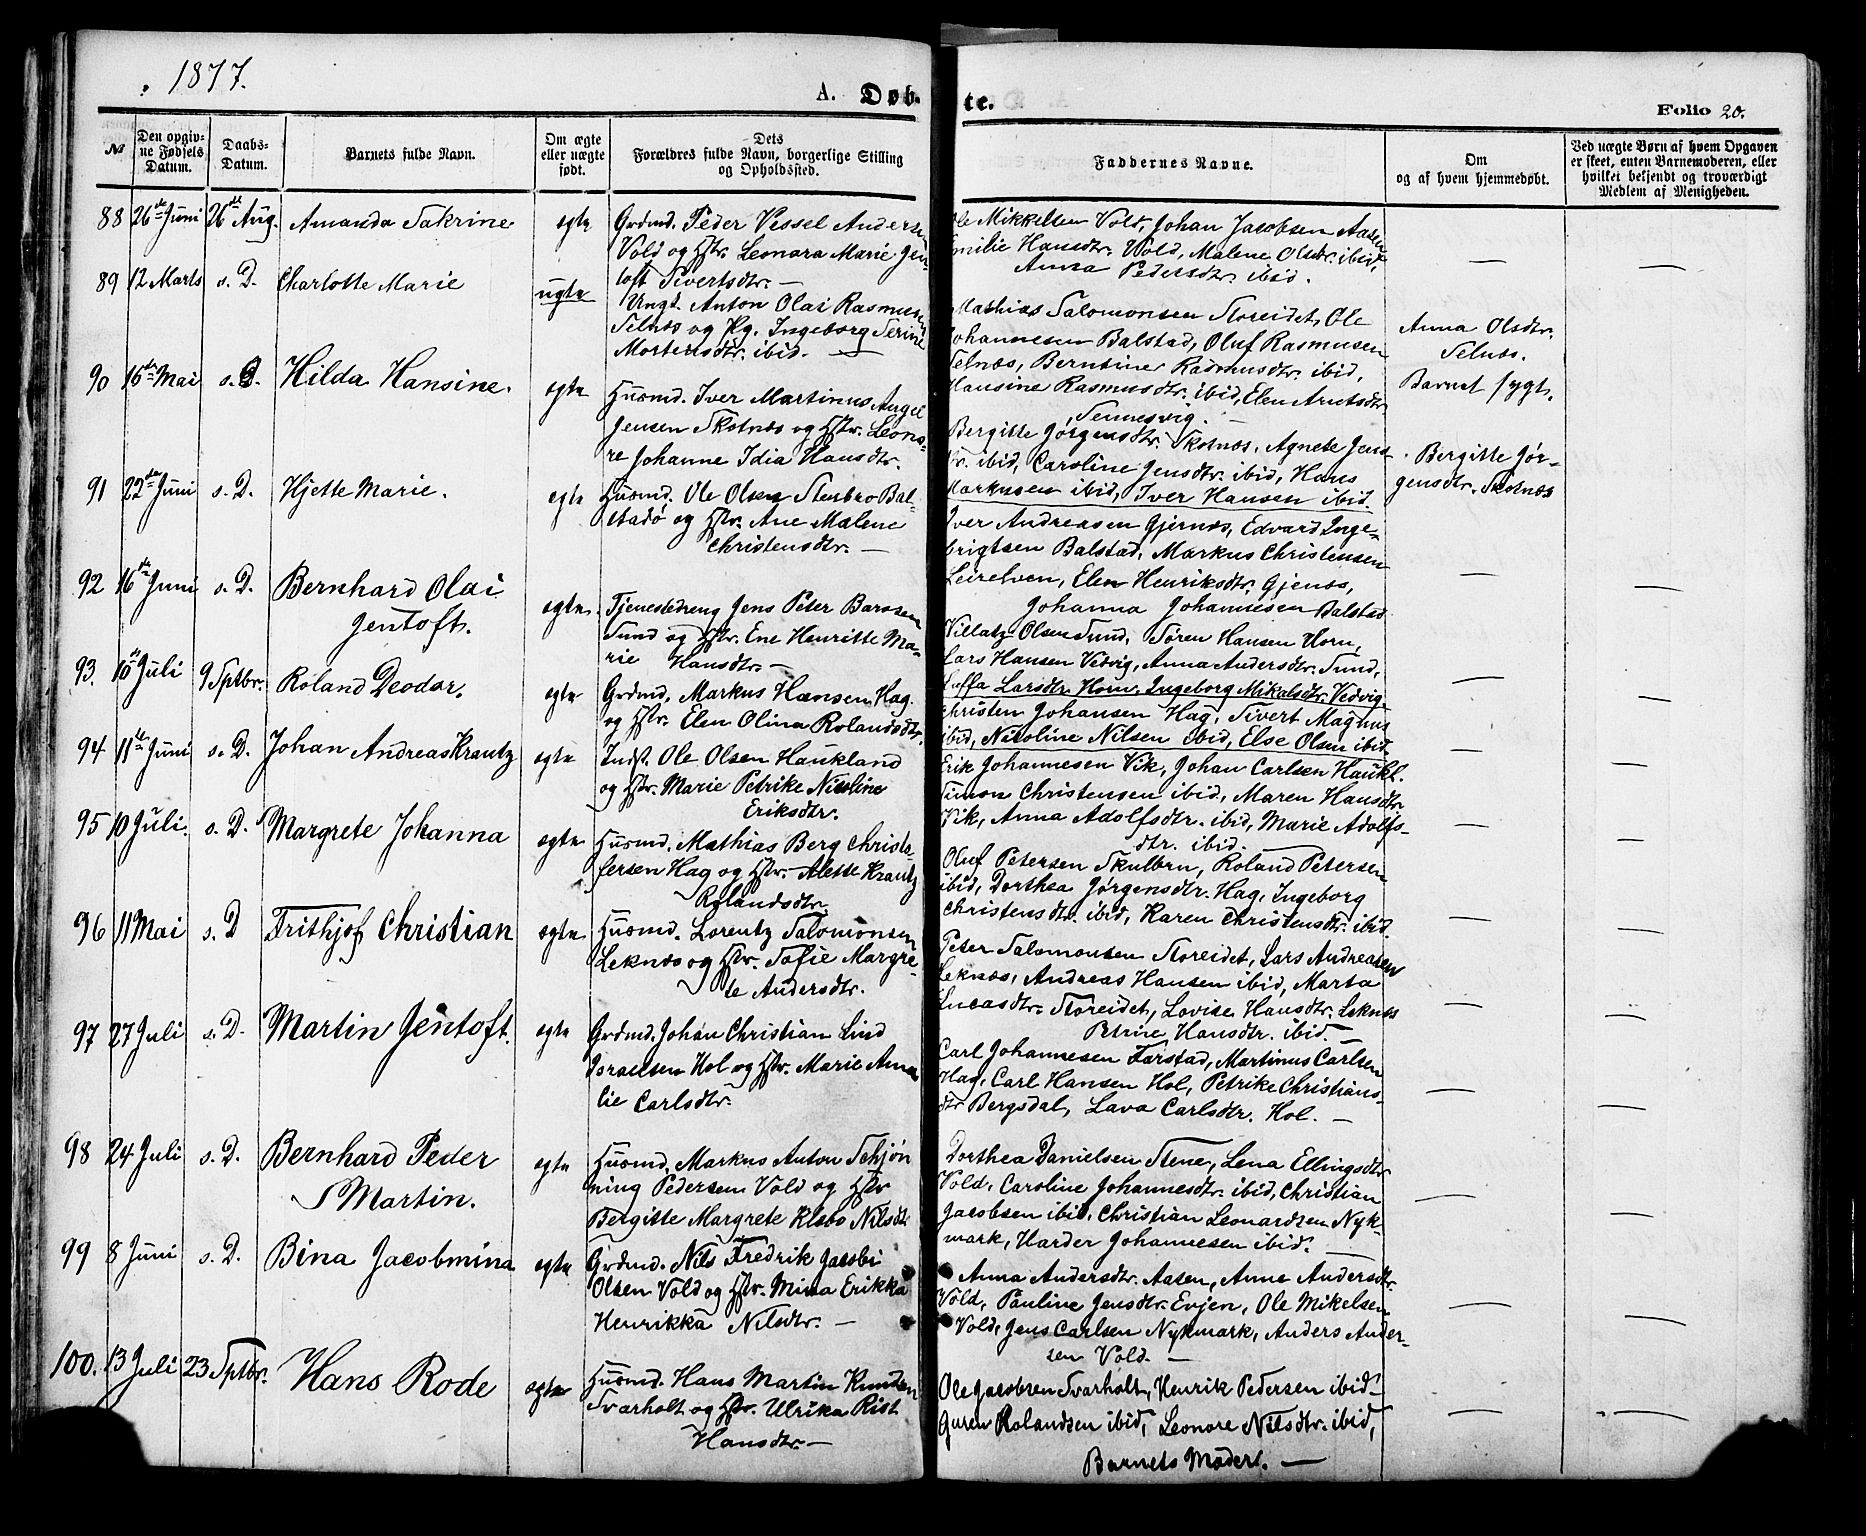 1877.
A. Døb-
te.
Folio 20.
№
Den opgiv-
ne Fødsels
Datum.
Daabs-
Datum.
Barnets fulde Navn.
Om ægte
eller uægte
født.
Dets
Forældres fulde Navn, borgerlige Stilling
og Opholdssted.
Faddernes Navne.
Om
og af hvem hjemmedøbt.
Ved uægte Børn af hvem Opgaven
er skeet, enten Barnemoderen, eller
hvilket bekjendt og troværdigt
Medlem af Menigheden.
88 26de Juni 26de Aug. Amanda Sakrine egte
Grdmd. Peder Vessel Andersen
Vold og Hstr. Leonara Marie Jen-
toft Sivertsdtr. —
Ole Mikkelsen Vold, Johan Jacobsen Aasen
Emilie Hansdtr. Vold, Malene Olsdtr. ibid,
Anna Pedersdtr. ibid.
— —
89 12 Marts s. D. Charlotte Marie ugte
Ungk. Anton Olai Rasmusen
Selnæs og Pg. Ingeborg Serine
Mortensdtr. ibid. —
Mathias Salomonsen Storeidet, Ole
Johannesen Balstad, Oluf Rasmusen
Selnæs, Berntine Rasmusdtr. ibid,
Hansine Rasmusdtr. ibid, Elen Arntsdtr
Sennesvig. —
Anna Olsdtr.
Selnæs.
Barnet sygt.
90 16de Mai s. D. Hilda Hansine. egte
Husmd. Iver Martinus Angel
Jensen Skotnæs og Hstr. Leono-
re Johanne Idia Hansdtr.
Bergitte Jørgensdtr. Skotnæs, Agnete Jens
dtr. ibid, Caroline Jensdtr. ibid, Hans
Markusen ibid, Iver Hansen ibid.
Bergitte Jør-
gensdtr. Skotnæs
91 22de Juni s. D. Hjette Marie. egte
Husmd. Ole Olsen Stenbro Bal-
stadø og Hstr. Ane Malene
Christensdtr. —
Iver Andreasen Gjernæs, Edvard Inge-
brigtsen Balstad, Markus Christensen
Leirelven, Elen Henriksdtr. Gjenæs,
Johanna Johannesen Balstad
— —
92 16de Juni s. D. Bernhard Olai
Jentoft. egte.
Tjenestedreng Jens Peter Barosen
Sund og Hstr. Ene Henritte Ma-
rie Hansdtr. —
Villatz Olsen Sund, Søren Hansen Horn,
Lars Hansen Vedvig, Anna Andersdtr. Sund,
Laffa Larsdtr. Horn, Ingeborg Mikalsdtr. Vedvig.
— —
93. 10de Juli 9 Sptbr. Roland Deodor. egte
Grdmd. Markus Hansen Hag.
og Hstr. Elen Olina Rolandsdtr.
Christen Johansen Hag, Sivert Magnus
ibid, Nicoline Nilsen ibid, Else Olsen ibid.
— —
94 11te Juni s. D. Johan Andreas Krantz egte
Indst. Ole Olsen Haukland
og Hstr. Marie Petrike Nicoline
Eriksdtr.
Erik Johannesen Vik, Johan Carlsen Haukl.
Simon Christensen ibid, Maren Hansdtr
Vik, Anna Adolfsdtr. ibid, Marie Adolfs-
dtr. ibid.
— —
95 10 Juli. s. D. Margrete Johanna egte
Husmd. Mathias Berg Christo-
fersen Hag og Hstr. Alette Krantz
Rolandsdtr.
Oluf Petersen Skulbru, Roland Petersen
ibid, Dorthea Jørgensdtr. Hag, Ingeborg
Christensdtr. ibid, Karen Christensdtr. ibid.
— —
96 11 Mai s. D Frithjof Christian egte
Husmd. Lorentz Salomonsen
Leknæs og Hstr. Sofie Margre-
te Andersdtr.
Peter Salomonsen Storeidet, Lars Andreasen
Leknæs, Andreas Hansen ibid, Marta
Lucasdtr. Storeidet, Lovise Hansdtr. Leknæs
Petrine Hansdtr. ibid. —
— —
97 27 Juli s. D. Martin Jentoft. egte
Grdmd. Johan Christian Lind
Israelsen Hol og Hstr. Marie Ama
lie Carlsdtr.
Carl Johannesen Farstad, Martinus Carlsen
Hag, Carl Hansen Hol, Petrike Christians-
dtr Bergsdal, Lava Carlsdtr. Hol. —
— —
98 24 Juli s. D. Bernhard Peder
Martin. egte
Husmd. Markus Anton Schjøn
ning Pedersen Vold og Hstr
Bergitte Margrete Klæbo Nilsdtr
Dorthea Danielsen Stene, Lena Ellingsdtr
Vold, Caroline Johannesdtr. ibid, Christian
Jacobsen ibid, Christian Leonardsen Nyk-
mark, Harder Johannesen ibid. —
— —
99 8 Juni s. D. Bina Jacobmina egte
Grdmd. Nils Fredrik Jacobi
Olsen Vold og Hstr. Mina Erikka
Henrikka Nilsdtr. —
Anna Andersdtr. Aasen, Anne Andersdtr.
Vold, Pauline Jensdtr. Evjen, Ole Mikelsen
Vold, Jens Carlsen Nykmark, Anders Ander-
sen Vold. —
— —
100. 13 Juli 23 Sptbr. Hans Rode egte
Husmd. Hans Martin Knudsen
Svarholt og Hstr. Ulrika Rist
Hansdtr. —
Ole Jacobsen Svarholt, Henrik Pedersen ibid
Guren Rolandsen ibid, Leonore Nilsdtr. ibid,
Barnets Moder. —
— —